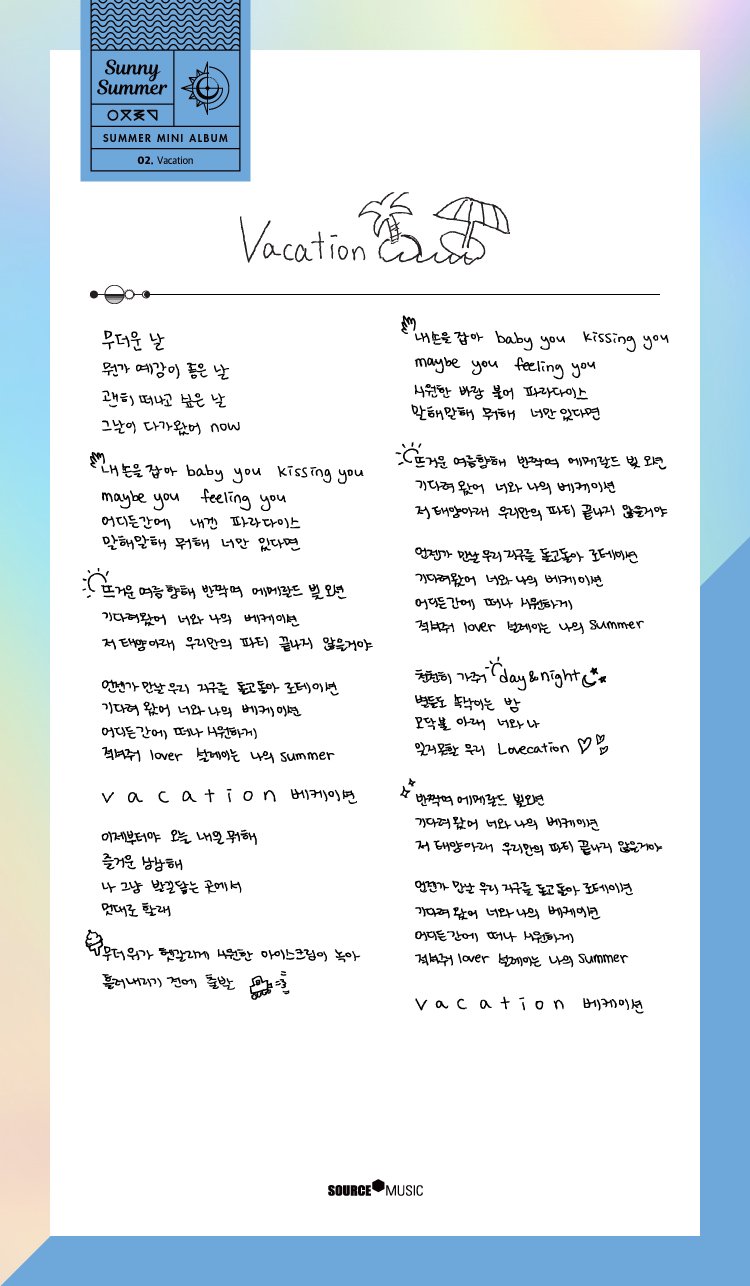 Sunny
Summer
SUMMER MINI ALBUM
02. Vacation
Vacation
무더운 날
뭔가 예감이 좋은 날
괜히 떠나고 싶은 날
그날이 다가왔어 now
내 손을 잡아 baby you kissing you
maybe you feeling you
어디든간에 내겐 파라다이스
말해말해 뭐해 너만 있다면
뜨거운 여름향해 반짝여 에메랄드 빛 외면
기다려왔어 너와 나의 베케이션
저 태양아래 우리만의 파티 끝나지 않을거야
언젠가 만날 우리 지구를 돌고돌아 로테이션
기다려 왔어 너와 나의 베케이션
어디든간에 떠나 시원하게
적셔줘 lover 설레이는 나의 summer
vacation 베케이션
이제부터야 오늘 내일 뭐해
즐거운 상상해
나 그냥 발길닿는 곳에서
멋대로 할래
무더위가 헷갈리게 시원한 아이스크림이 녹아
흘러내리기 전에 출발
내손을 잡아 baby you kissing you
maybe you feeling you
시원한 바람 불어 파라다이스
말해말해 뭐해 너만 있다면
뜨거운 여름향해 반짝여 에메랄드 빛 외면
기다려 왔어 너와 나의 베케이션
저 태양아래 우리만의 파티 끝나지 않을거야
언젠가 만날 우리 지구를 돌고돌아 로테이션
기다려왔어 너와 나의 베케이션
어디든간에 떠나 시원하게
적셔줘 lover 설레이는 나의 summer
천천히 가줘 day & night
별들도 속삭이는 밤
모닥불 아래 너와 나
잊지못할 우리 Lovecation
반짝여 에메랄드 빛외면
기다려 왔어 너와 나의 베케이션
저 태양아래 우리만의 파티 끝나지 않을거야
언젠가 만날 우리 지구를 돌고돌아 로테이션
기다려 왔어 너와 나의 베케이션
어디든간에 떠나 시원하게
적셔줘 lover 설레이는 나의 summer
vacation 베케이션
SOURCE MUSIC